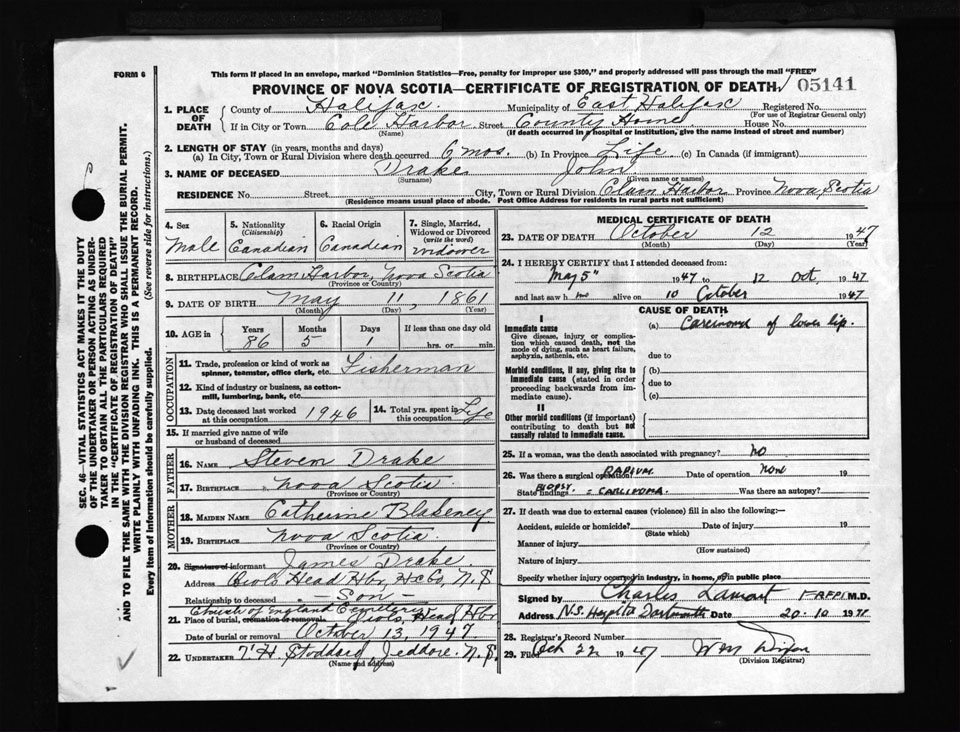 FORM 6
This form if placed in an envelope, marked "Dominion Statistics—Free, penalty for improper use $300," and properly addressed will pass through the mail "FREE"
PROVINCE OF NOVA SCOTIA—CERTIFICATE OF REGISTRATION OF DEATH 05141
1. PLACE OF DEATH County of Halifax Municipality of East Halifax Registered No.
(For use of Registrar General only)
If in City or Town Cole Harbor Street County Home House No.
(Name) (If death occurred in hospital or institution, give the name instead of street and number)
2. LENGTH OF STAY (in years, months and days)
(a) In City, Town or Rural Division where death occurred 6 mos. (b) In Province Life (c) In Canada (if immigrant)
3. NAME OF DECEASED Drake John
(Surname) (Given name or names)
RESIDENCE No. Street City, Town or Rural Division Clam Harbor Province Nova Scotia
(Residence means usual place of abode. Post Office Address for residents in rural parts not sufficient)
4. Sex Male
5. Nationality (Citizenship) Canadian
6. Racial Origin Canadian
7. Single, Married, Widowed or Divorced (write the word) widower
8. BIRTHPLACE Clam Harbor, Nova Scotia
(Province or Country)
9. DATE OF BIRTH May 11, 1861
(Month) (Day) (Year)
10. AGE in Years Months Days If less than one day old
86 5 1 hrs. or min.
OCCUPATION
11. Trade, profession or kind of work as spinner, teamster, office clerk, etc. Fisherman
12. Kind of industry or business, as cotton-mill, lumbering, bank, etc.
13. Date deceased last worked at this occupation 1946
14. Total yrs. spent in this occupation Life
15. If married give name of wife or husband of deceased
FATHER
16. NAME Steven Drake
17. BIRTHPLACE Nova Scotia
(Province or Country)
MOTHER
18. MAIDEN NAME Catherine Blakeney
19. BIRTHPLACE Nova Scotia
(Province or Country)
20. Signature of informant James Drake
Address Head Hbr, Hx Co, N.S
Relationship to deceased - Son -
Church of England Cemetery
21. Place of burial, cremation or removal Head Hbr
Date of burial or removal October 13, 1947
22. UNDERTAKER T H Stoddard Jeddore. N.S.
(Name and address)
MEDICAL CERTIFICATE OF DEATH
23. DATE OF DEATH October 12 1947
(Month) (Day) (Year)
24. I HEREBY CERTIFY that I attended deceased from:
May 5" 1947 to 12 Oct, 1947
and last saw h im alive on 10 October 1947
CAUSE OF DEATH
I
Immediate cause
Give disease, injury or complication which caused death, not the mode of dying, such as heart failure, asphyxia, asthenia, etc.
(a) Carcinoma of lower lip.
due to
Morbid conditions, if any, giving rise to immediate cause (stated in order proceeding backwards from immediate cause).
(b)
due to
(c)
II
Other morbid conditions (if important) contributing to death but not causally related to immediate cause.
25. If a woman, was the death associated with pregnancy? no
26. Was there a surgical operation? RADIUM. Date of operation none 19
State findings BIOPSY = CARCINOMA. Was there an autopsy?
27. If death was due to external causes (violence) fill in also the following:—
Accident, suicide or homicide? Date of injury 19
(State which)
Manner of injury
(How sustained)
Nature of injury
Specify whether injury occurred in industry, in home, or in public place
Signed by Charles M.D.
Address N.S. Hospital Dartmouth Date 20-10 19
28. Registrar's Record Number
29. Filed Oct 22 1947 Wm
(Division Registrar)
SEC. 46—VITAL STATISTICS ACT MAKES IT THE DUTY
OF THE UNDERTAKER OR PERSON ACTING AS UNDER-
TAKER TO OBTAIN ALL THE PARTICULARS REQUIRED
IN THE "CERTIFICATE OF REGISTRATION OF DEATH"
AND TO FILE THE SAME WITH THE DIVISION REGISTRAR WHO SHALL ISSUE THE BURIAL PERMIT.
WRITE PLAINLY WITH UNFADING INK. THIS IS A PERMANENT RECORD.
Every item of information should be carefully supplied. (See reverse side for instructions.)